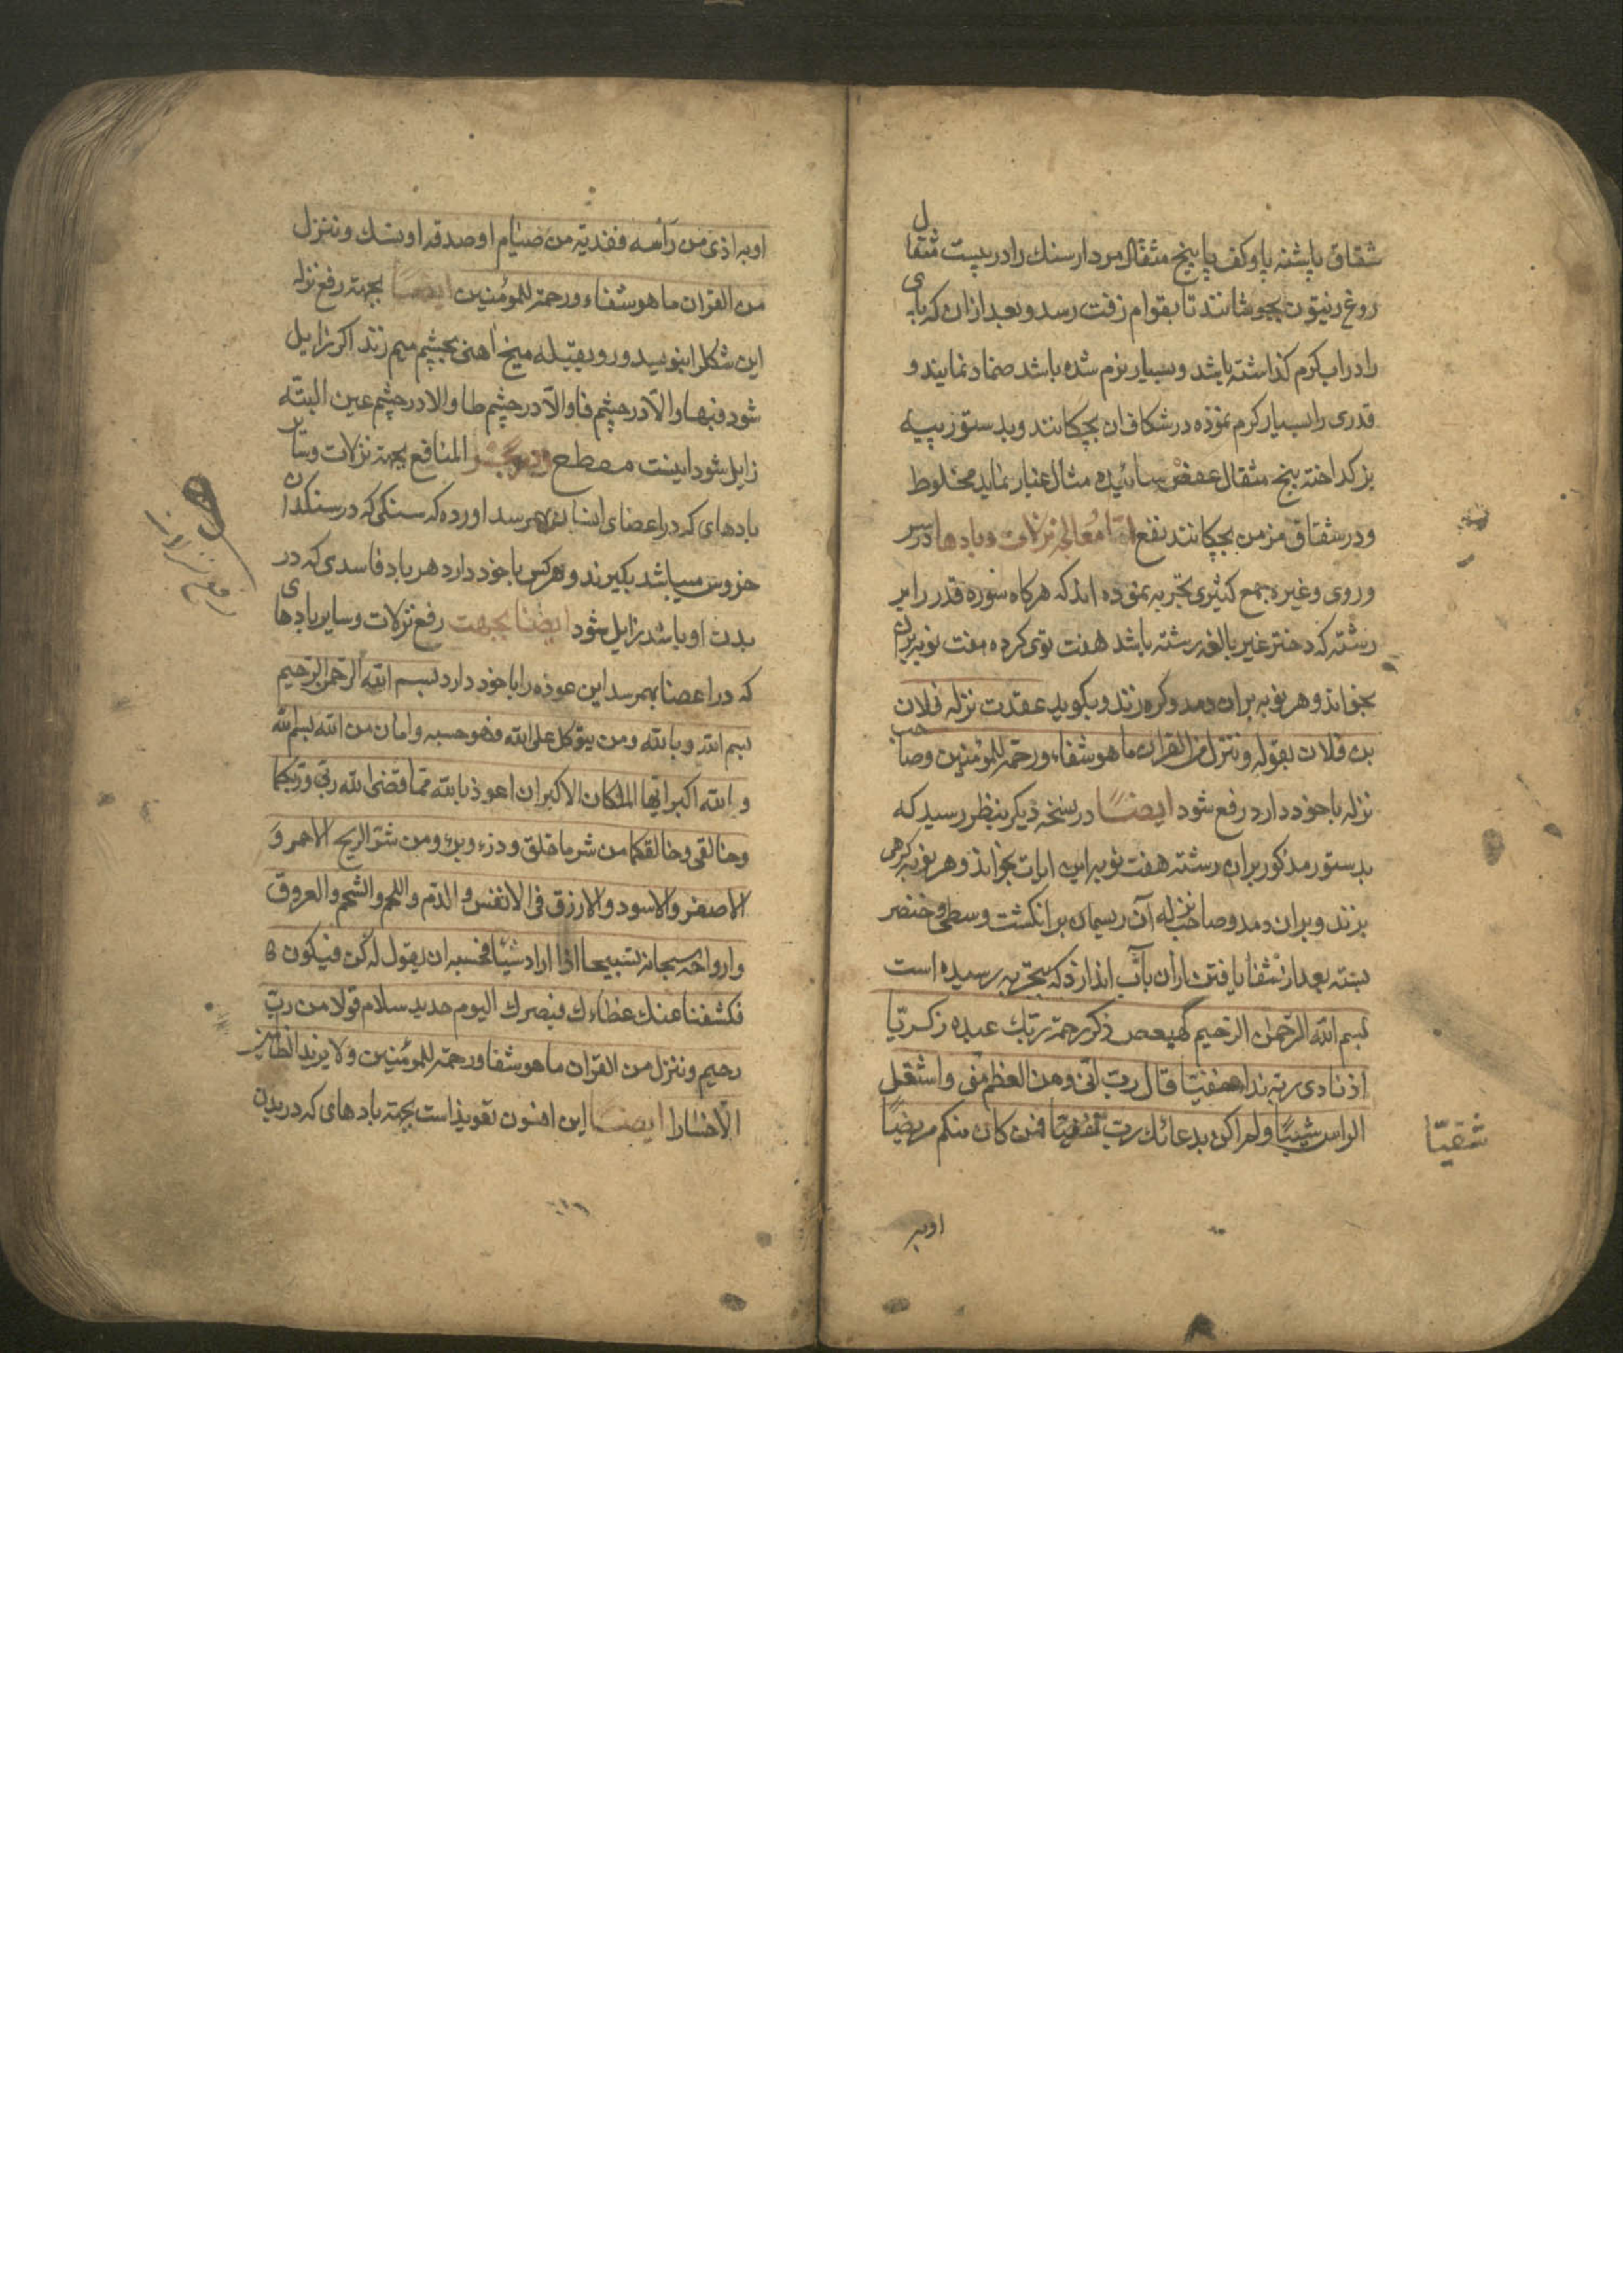 شقاق پاپشنه پا و کف پا پنج مثقال مردار سنك را در بیست مثقال
روغ زیتون بجوشانند تا بقوام زفت رسد و بعد ازان که پای
را در اب کرم کذاشته باشد و بسیار نرم شده باشد ضماد نمایند و
قدری را بسیار کرم نموذه در شکاف ان بچکانند و بدستور پیه
بز کداخته پنج مثقال عفص سائیده مثال غبار نماید مخلوط
و در شقاق مزمن بچکانند نفع امّا معالجه نزلات و بادها در سر
و روی و غیره جمع کثیری تجربه نموده اند که هرکاه سوره قدر را بر
رشته که دختر غیر بالغه رشته باشد هفت توی کرده هفت نوبه بران
بخواند و هر نوبه بران دمد و کره زند و بکوید عقدت نزله فلان
بن فلان بقوله و ننزل من القران ما هو شفاء و رحمة للمؤمنین و صاحب
نزله با خود دارد رفع شود ایضاً در نسخه دیکر بنظر رسید که
بدستور مذکور بران رشته هفت نوبه این ایات بخواند و هر نوبه کرهی
بزند و بران دمد و صاحب نزله آن ریسمان بر انکشت وسطی و خنصر
بسته بعد از شفا یافتن ازان باب اندازد که بتجربه رسیده است
بسم الله الرّحمن الرّحیم کهیعص ذکر رحمة ربّك عبده زکریّا
اذ نادی ربه نداء خفیّا قال ربّ انّی وهن العظم منّی و اشتعل
الراس شیبًا و لم اکن بدعائك ربّ شقیّا فمن کان منکم مریضًا
شقیّا
اوبه
اوبه اذی من رأسه ففدیة من صیام او صدقه او نسك و ننزل
من القران ما هو شفاء و رحمة للمؤمنین ایضاً بجهة رفع نزله
این شکل را بنویسد و رو بقبله میخ اهنی بچشم میم زند اکر زایل
شود فبها و الّا در چشم فا و الّا در چشم طا و الا در چشم عین البته
زایل شود اینست مفطع المنافع بجهة نزلات و سایر
بادهای که در اعضای انسان بهم رسد اورده که سنکی که در سنکدان
خروس میباشد بکیرند و هرکس با خود دارد هر باد فاسدی که در
بدن او باشد زایل شود ایضا بجهت رفع نزلات و سایر بادهای
که در اعضا بهمرسد این عوذه را با خود دارد بسم الله الرّحمن الرّحیم
بسم الله و بالله و من یتوکل علی الله فهو حسبه و امان من الله بسم الله
و الله اکبر ایّها الملکان الاکبران اعوذ بالله ممّا قضی الله ربّی و ربّکما
و خالقی و خالقکما من شر ما خلق و ذرء و برء و من شرّ الریح الاحمر و
الاصفر و الاسود و الازرق فی الانفس و الدّم و اللحم و الشحم و العروق
و ارواحه سبحانه تسبیحا اذا اراد شیئا فحسبه ان یقول له کن فیکون
فکشفنا عنك غطاءك فبصرك الیوم حدید سلام قولا من ربّ
رحیم و ننزل من القران ما هو شفا و رحمة للمؤمنین و لا یزید الظالمین
الّا خسارا ایضاً این افسون تعویذ است بجهة بادهای که در بدن